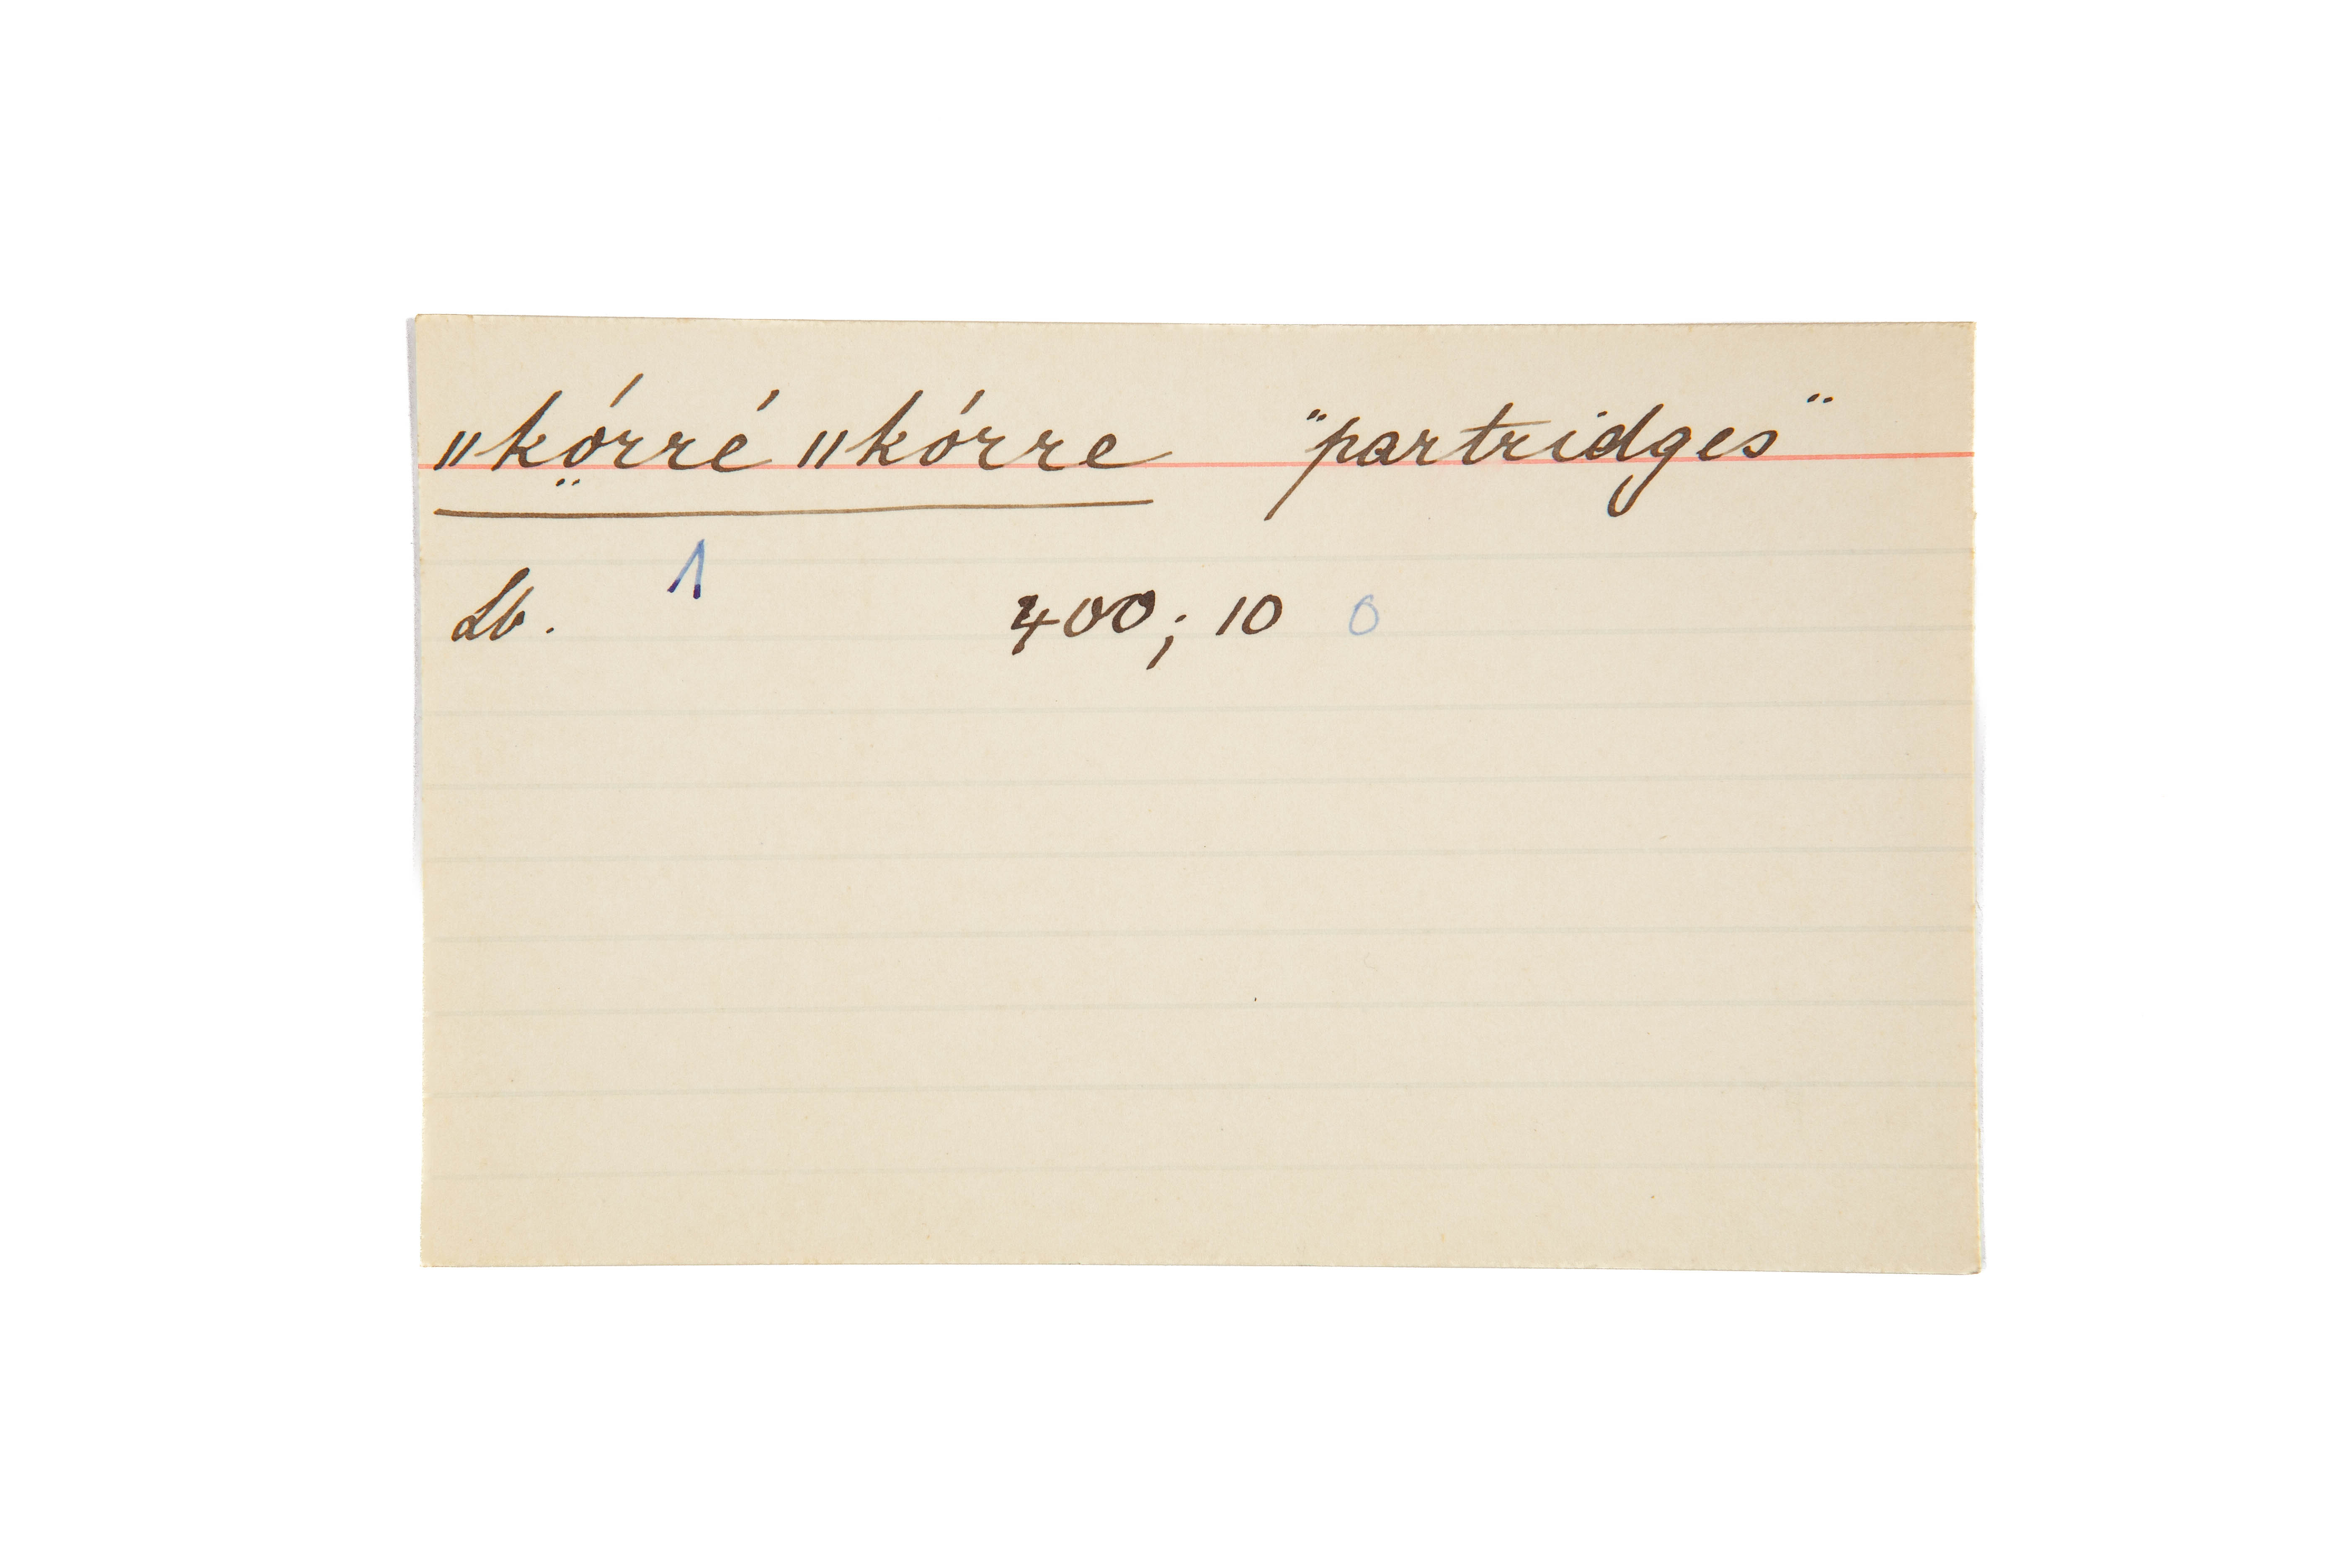 ǁkó̤rré ǁkórre "partridges"
Lb. 1 400; 10 0